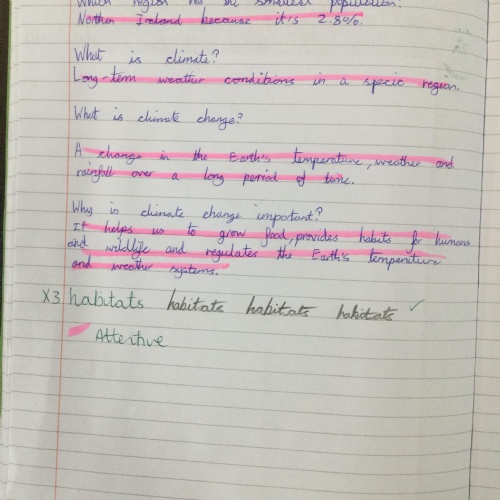 Which region has the smallest population?
Northen Ireland because it's 2.8%.
What is climate?
Long-term weather conditions in a specic region.
What is climate change?
A change in the Earth's temperature, weather and
rainfall over a long period of time.
Why is climate change important?
It helps us to grow food, provides habits for humans
and wildlife and regulates the Earth's temperature
and weather systems.
X3 habitats habitats habitats habitats ✓
Attentive